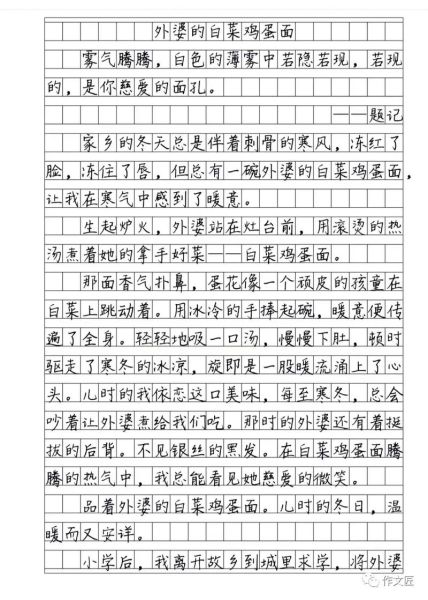 外婆的白菜鸡蛋面
雾气腾腾，白色的薄雾中若隐若现，若现
的，是你慈爱的面孔。
——题记
家乡的冬天总是伴着刺骨的寒风，冻红了
脸，冻住了唇，但总有一碗外婆的白菜鸡蛋面，
让我在寒气中感到了暖意。
生起炉火，外婆站在灶台前，用滚烫的热
汤煮着她的拿手好菜——白菜鸡蛋面。
那面香气扑鼻，蛋花像一个顽皮的孩童在
白菜上跳动着。用冰冷的手捧起碗，暖意便传
遍了全身。轻轻地吸一口汤，慢慢下肚，顿时
驱走了寒冬的冰凉，旋即是一股暖流涌上了心
头。儿时的我依恋这口美味，每至寒冬，总会
吵着让外婆煮给我们吃。那时的外婆还有着挺
拔的后背。不见银丝的黑发。在白菜鸡蛋面腾
腾的热气中，我总能看见她慈爱的微笑。
品着外婆的白菜鸡蛋面。儿时的冬日，温
暖而又安详。
小学后，我离开故乡到城里求学，将外婆
作文匠